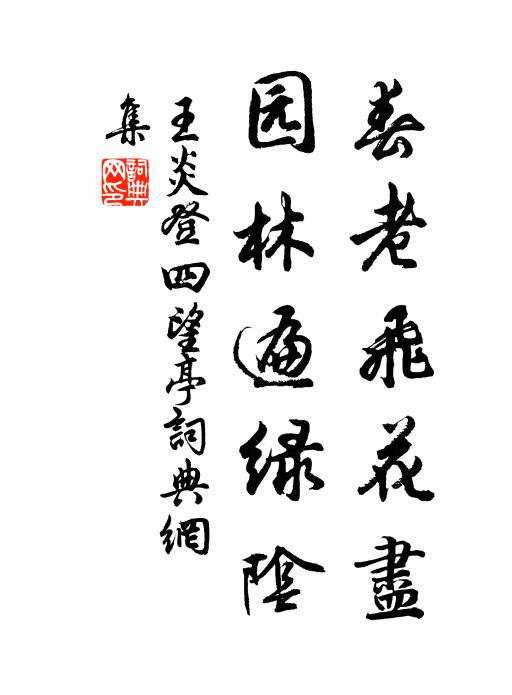 春老飛花盡
园林遍绿陰
王炎登四望亭詞典網
集
詞典网印